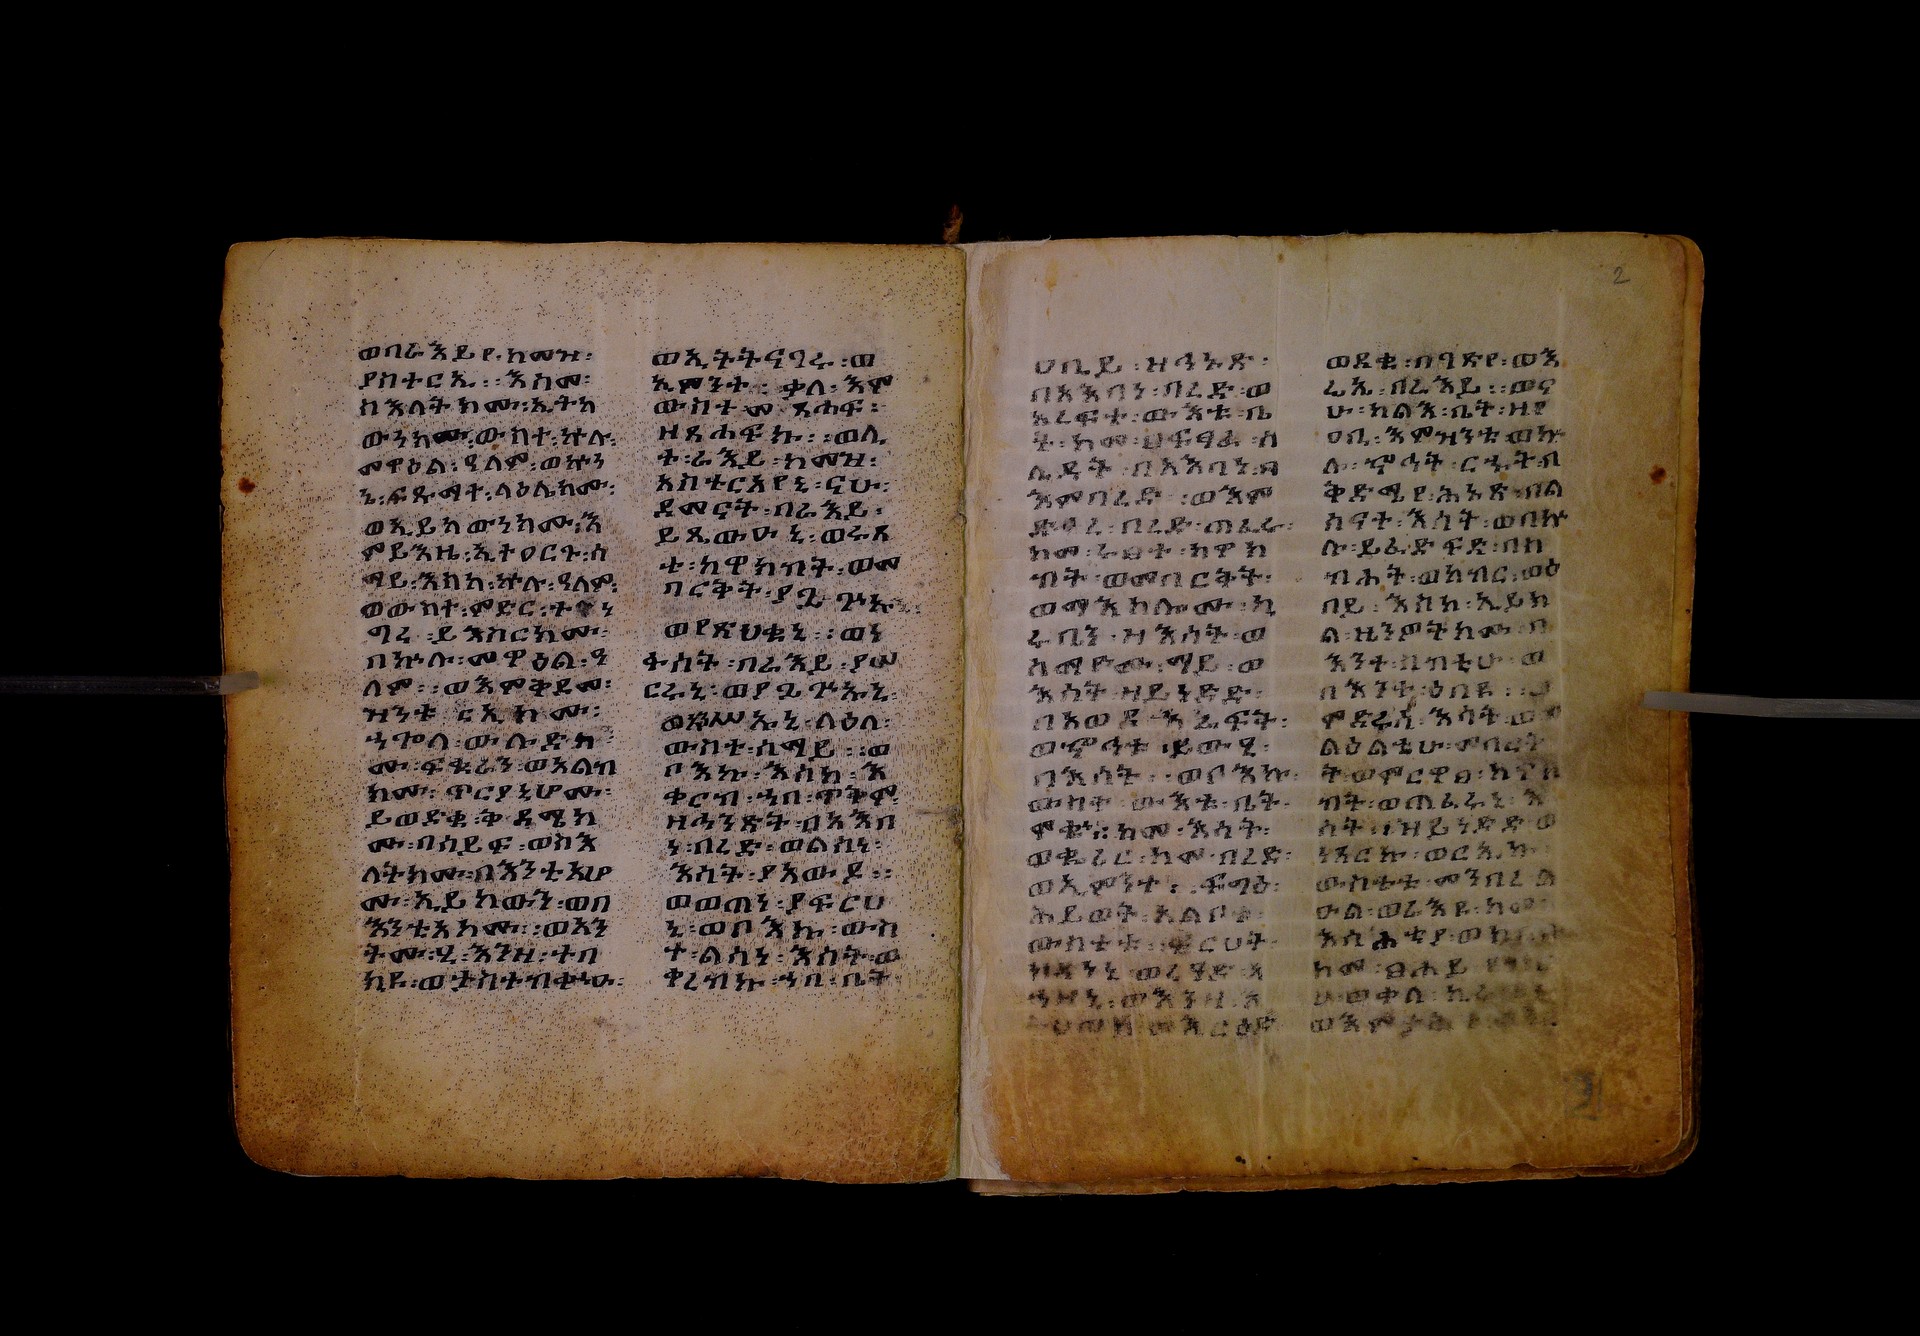 ወበራእይየ፡ከመዝ፡
ያስተርኢ፡፡እስመ፡
ስእለትክሙ፡ኢትከ
ውንክሙ፡ውስተ፡ኵሉ፡
መዋዕል፡ዓለም፡ወኵነ
ኔ፡ፍጽምት፡ላዕሌክሙ፡
ወኢይከውነክሙ፡እ
ምይእዜ፡ኢተዐርጉ፡ሰ
ማይ፡እስከ፡ኵሉ፡ዓለም፡
ወውስተ፡ምድር፡ተ ነ
ግረ፡ይእስርክሙ፡
በኵሉ፡መዋዕል፡ዓ
ለም፡፡ወእምቅደመ፡
ዝንቱ፡ርኢክሙ፡
ኃጐለ፡ውሉድክ
ሙ፡ፍቁራን፡ወአልብ
ክሙ፡ጥርያኒሆሙ፡
ይወድቁ፡ቅድሜክ
ሙ፡በሰይፍ፡ወስእ
ለትክሙ፡በእንቲአሆ
ሙ፡ኢይከውን፡ወበ
እንቲአክሙ፡፡ወአን
ትሙ፡ሂ፡እንዘ፡ተበ
ክዩ፡ወታስተበቍዑ፡
ወኢትትናገሩ፡ወ
ኢምንተ፡ቃለ፡እም
ውስተ፡መጽሐፍ፡
ዘጸሐፍኩ፡፡ወሊ
ተ፡ራእይ፡ከመዝ፡
አስተርአየኒ፡ናሁ፡
ደመናት፡በራእይ፡
ይጼውዑኒ፡ወሩጸ
ተ፡ከዋክብት፡ወመ
ባርቅት፡ያጔጕኡ
ወየጽህቁኒ፡፡ወነ
ፋሳት፡በራእይ፡ያሠ
ርሩኒ፡ወያጔጕኡኒ፡
ወአንሥኡኒ፡ላዕለ፡
ውስተ፡ሰማይ፡፡ወ
ቦእኩ፡እስከ፡እ
ቀርብ፡ኀበ፡ጥቅም፡
ዘሕንጽት፡በአእባ
ነ፡በረድ፡ወልሳነ፡
እሳት፡ያአውዶ፡፡
ወወጠነ፡ያፍርህ
ኒ፡ወቦእኩ፡ውስ
ተ፡ልሳነ፡እሳት፡ወ
ቀረብኩ፡ኀበ፡ቤት
ዐቢይ፡ዘሓኑጽ፡
በአእባነ፡በረድ፡ወ
አረፍተ፡ውእቱ፡ቤ
ት፡ከመ፡ፀፍፀፈ፡ሰ
ሌዳት፡በአእባነ፡ዘ
እምበረድ፡፡ወእም
ድሩ፡በረድ፡ጠፈሩ፡
ከመ፡ሩፀተ፡ከዋክ
ብት፡ወመባርቅት፡
ወማእከሎሙ፡ኪ
ሩቤን፡ዘእሳት፡ወ
ሰማዮሙ፡ማይ፡ወ
እሳት፡ዘይነድድ፡
በአውደ፡አረፍት፡
ወኆኅቱ፡ይውዒ፡
በእሳት፡፡ወቦእኩ፡
ውስተ፡ውእቱ፡ቤት፡
ምቁቅ፡ከመ፡እሳት፡
ወቈሪር፡ከመ፡በረድ፡
ወኢምንተ፡፡ፍግዕ፡
ሕይወት፡አልቦቱ፡
ውስተቱ፡ፍርሀት፡
ከደነኒ፡ወረዓድ፡አ
ኀዘኒ፡ወእንዘ፡እ
ትሀወክ፡ወእርዕድ፡
ወደቁ፡በገጽየ፡ወእ
ሬኢ፡በራእይ፡፡ወና
ሁ፡ካልእ፡ቤት፡ዘየ
ዐቢ፡እምዝንቱ፡ወኵ
ሉ፡ኆኅት፡ርኁት፡በ
ቅድሜየ፡ሕኑጽ፡በል
ሳናተ፡እሳት፡ወበኵ
ሉ፡ይፈድፍድ፡በስ
ብሐት፡ወክብር፡ወዕ
በይ፡እስከ፡ኢይክ
ል፡ዜንዎትክሙ፡በ
እንተ፡ስብሐቲሁ፡ወ
በእንተ፡ዕበዩ፡፡ወ
ምድሩሰ፡እሳት፡ወመ
ልዕልቴሁ፡መባርቅ
ት፡ወምርዋፀ፡ከዋክ
ብት፡ወጠፈሩኒ፡እ
ሳት፡ዘይነድድ፡ወ
ነጸርኩ፡ወርኢኩ፡
ውስቴቱ፡መንበረ፡ል
ዑል፡ወራእዩ፡ከመ፡
አስሐትያ፡ወክበቡ
ከመ፡ፀሐይ
ወቃለ፡ኪሩ
ወእምታሕ